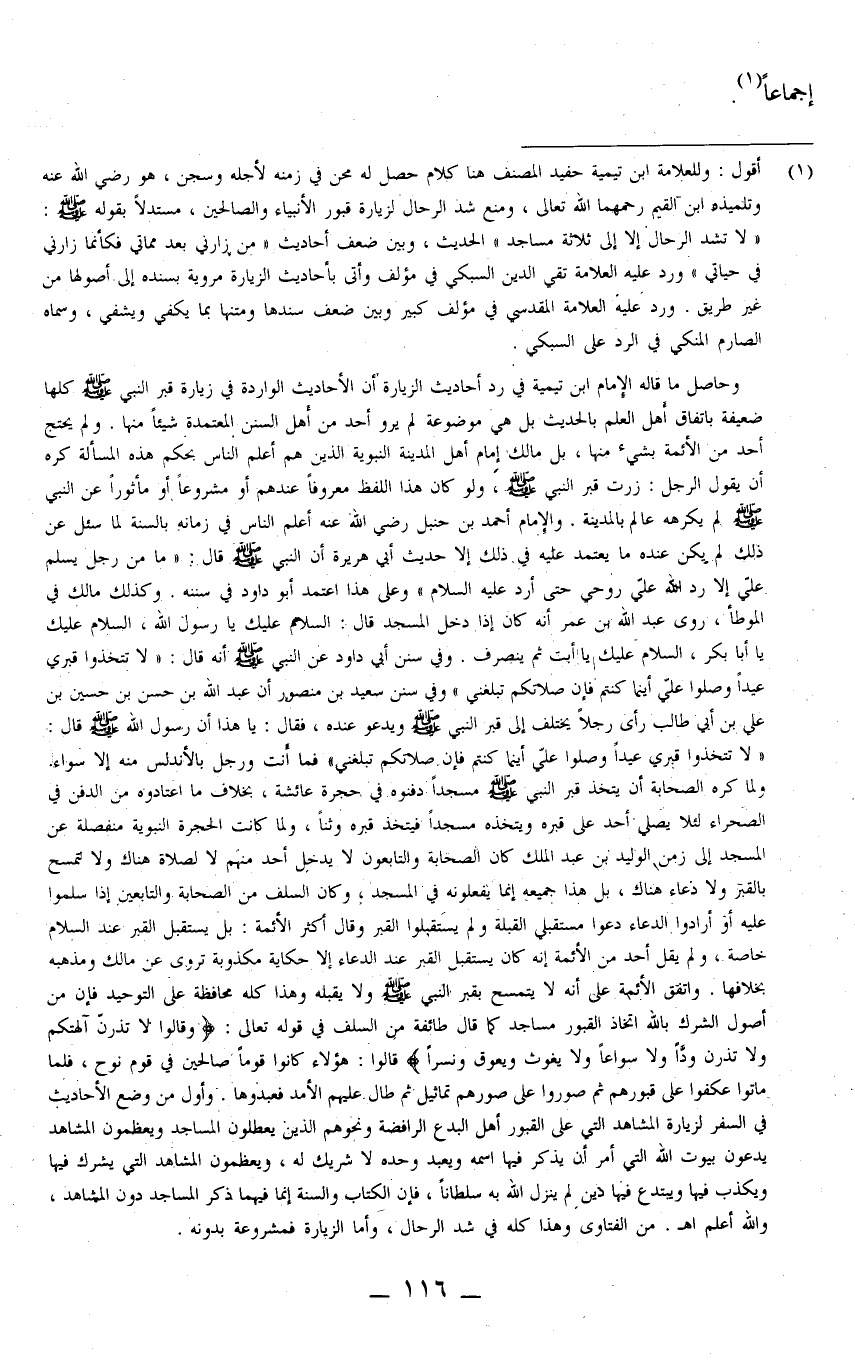 إجماعاً(١) .
(١) أقول : وللعلامة ابن تيمية حفيد المصنف هنا كلام حصل له محن في زمنه لأجله وسجن ، هو رضي الله عنه
وتلميذه ابن القيم رحمهما الله تعالى ، ومنع شد الرحال لزيارة قبور الأنبياء والصالحين ، مستدلاً بقوله ﷺ :
« لا تشد الرحال إلا إلى ثلاثة مساجد » الحديث ، وبين ضعف أحاديث « من زارني بعد مماتي فكأنما زارني
في حياتي » ورد عليه العلامة تقي الدين السبكي في مؤلف وأتى بأحاديث الزيارة مروية بسنده إلى أصولها من
غير طريق . ورد عليه العلامة المقدسي في مؤلف كبير وبين ضعف سندها ومتنها بما يكفي ويشفي ، وسماه
الصارم المنكي في الرد على السبكي .
وحاصل ما قاله الإمام ابن تيمية في رد أحاديث الزيارة أن الأحاديث الواردة في زيارة قبر النبي ﷺ كلها
ضعيفة باتفاق أهل العلم بالحديث بل هي موضوعة لم يرو أحد من أهل السنن المعتمدة شيئاً منها . ولم يحتج
أحد من الأئمة بشيء منها ، بل مالك إمام أهل المدينة النبوية الذين هم أعلم الناس بحكم هذه المسألة كره
أن يقول الرجل : زرت قبر النبي ﷺ ، ولو كان هذا اللفظ معروفاً عندهم أو مشروعاً أو مأثوراً عن النبي
ﷺ لم يكرهه عالم بالمدينة . والإمام أحمد بن حنبل رضي الله عنه أعلم الناس في زمانه بالسنة لما سئل عن
ذلك لم يكن عنده ما يعتمد عليه في ذلك إلا حديث أبي هريرة أن النبي ﷺ قال : « ما من رجل يسلم
عليّ إلا رد الله عليّ روحي حتى أرد عليه السلام » وعلى هذا اعتمد أبو داود في سننه . وكذلك مالك في
الموطأ ، روى عبد الله بن عمر أنه كان إذا دخل المسجد قال : السلام عليك يا رسول الله ، السلام عليك
يا أبا بكر ، السلام عليك يا أبت ثم ينصرف . وفي سنن أبي داود عن النبي ﷺ أنه قال : « لا تتخذوا قبري
عيداً وصلوا عليّ أينما كنتم فإن صلاتكم تبلغني » وفي سنن سعيد بن منصور أن عبد الله بن حسن بن حسين بن
علي بن أبي طالب رأى رجلاً يختلف إلى قبر النبي ﷺ ويدعو عنده ، فقال : يا هذا أن رسول الله ﷺ قال :
« لا تتخذوا قبري عيداً وصلوا عليّ أينما كنتم فإن صلاتكم تبلغني» فما أنت ورجل بالأندلس منه إلا سواء.
ولما كره الصحابة أن يتخذ قبر النبي ﷺ مسجداً دفنوه في حجرة عائشة ، بخلاف ما اعتادوه من الدفن في
الصحراء لئلا يصلي أحد على قبره ويتخذه مسجداً فيتخذ قبره وثناً ، ولما كانت الحجرة النبوية منفصلة عن
المسجد إلى زمن الوليد بن عبد الملك كان الصحابة والتابعون لا يدخل أحد منهم لا لصلاة هناك ولا تمسح
بالقبر ولا دعاء هناك ، بل هذا جميعه إنما يفعلونه في المسجد ، وكان السلف من الصحابة والتابعين إذا سلموا
عليه أو أرادوا الدعاء دعوا مستقبلي القبلة ولم يستقبلوا القبر وقال أكثر الأئمة : بل يستقبل القبر عند السلام
خاصة ، ولم يقل أحد من الأئمة إنه كان يستقبل القبر عند الدعاء إلا حكاية مكذوبة تروى عن مالك ومذهبه
بخلافها . واتفق الأئمة على أنه لا يتمسح بقبر النبي ﷺ ولا يقبله وهذا كله محافظة على التوحيد فإن من
أصول الشرك بالله اتخاذ القبور مساجد كما قال طائفة من السلف في قوله تعالى : ﴿ وقالوا لا تذرنّ آلهتكم
ولا تذرن ودًّا ولا سواعاً ولا يغوث ويعوق ونسراً ﴾ قالوا : هؤلاء كانوا قوماً صالحين في قوم نوح ، فلما
ماتوا عكفوا على قبورهم ثم صوروا على صورهم تماثيل ثم طال عليهم الأمد فعبدوها . وأول من وضع الأحاديث
في السفر لزيارة المشاهد التي على القبور أهل البدع الرافضة ونحوهم الذين يعطلون المساجد ويعظمون المشاهد
يدعون بيوت الله التي أمر أن يذكر فيها اسمه ويعبد وحده لا شريك له ، ويعظمون المشاهد التي يشرك فيها
ويكذب فيها ويبتدع فيها دين لم ينزل الله به سلطاناً ، فإن الكتاب والسنة إنما فيهما ذكر المساجد دون المشاهد ،
والله أعلم اهـ . من الفتاوى وهذا كله في شد الرحال ، وأما الزيارة فمشروعة بدونه .
– ١١٦ –